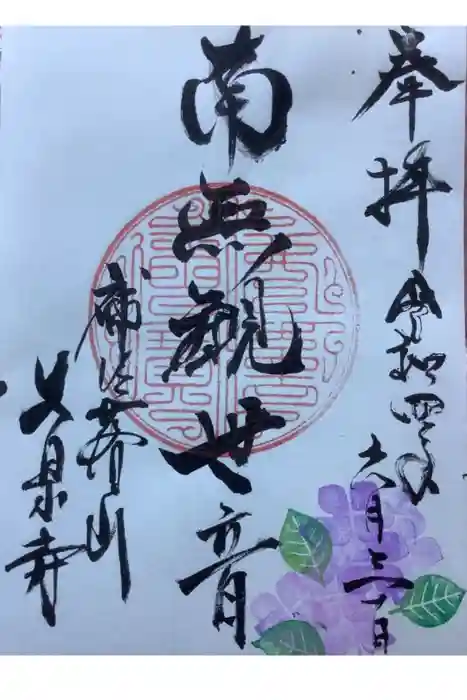 奉拝 令和四年
六月
南無観世音
補陀落山
泉寺